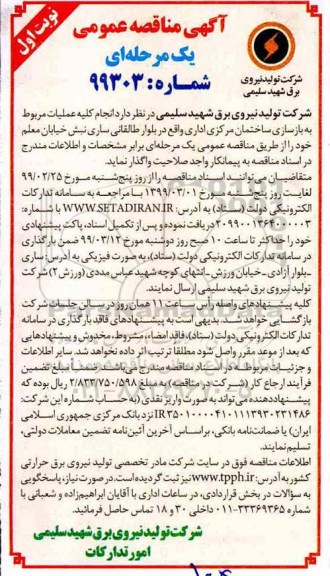 نوبت اول
آگهی مناقصه عمومی
یک مرحله‌ای
شماره: ۹۹۳۰۳
شرکت تولید نیروی
برق شهید سلیمی
شرکت تولید نیروی برق شهید سلیمی در نظر دارد انجام کلیه عملیات مربوط
به بازسازی ساختمان مرکزی اداری واقع در بلوار طالقانی ساری نبش خیابان معلم
خود را از طریق مناقصه عمومی یک مرحله‌ای برابر مشخصات و اطلاعات مندرج
در اسناد مناقصه به پیمانکار واجد صلاحیت واگذار نماید.
متقاضیان می‌توانند اسناد مناقصه را از روز پنج‌شنبه مورخ ۹۹/۰۲/۲۵
لغایت روز پنج‌شنبه مورخ ۱۳۹۹/۰۳/۰۱ با مراجعه به سامانه تدارکات
الکترونیکی دولت (ستاد) به آدرس: WWW.SETADIRAN.IR با شماره:
دریافت نموده و پس از تکمیل اسناد، پاکت پیشنهادی
خود را حداکثر تا ساعت ۱۰ صبح روز دوشنبه مورخ ۹۹/۰۳/۱۲ ضمن بارگذاری
در سامانه تدارکات الکترونیکی دولت (ستاد)، به صورت فیزیکی به آدرس: ساری
-بلوار آزادی-خیابان ورزش-انتهای کوچه شهید عباس مددی (ورزش ۲) شرکت
تولید نیروی برق شهید سلیمی ارسال نمایند.
کلیه پیشنهادهای واصله رأس ساعت ۱۱ همان روز در سالن جلسات شرکت
بازگشایی خواهد شد. بدیهی است به پیشنهادهای فاقد بارگذاری در سامانه
تدارکات الکترونیکی دولت (ستاد)، فاقد امضاء، مشروط، مخدوش و پیشنهادهایی
که بعد از موعد مقرر واصل شود مطلقا ترتیب اثر داده نخواهد شد. سایر اطلاعات
و جزئیات مربوطه در اسناد مناقصه مندرج می‌باشد. ضمنا مبلغ تضمین
فرآیند ارجاع کار (شرکت در مناقصه) به مبلغ ۲/۸۳۳/۷۵۰/۵۹۸ ریال بوده که
پیشنهاددهنده می‌تواند به صورت واریز نقدی (به حساب شماره این شرکت:
نزد بانک مرکزی جمهوری اسلامی
ایران) یا ضمانت‌نامه بانکی، براساس آخرین آئین‌نامه تضمین معاملات دولتی،
تسلیم نمایند.
اطلاعات مناقصه فوق در سایت شرکت مادر تخصصی تولید نیروی برق حرارتی
کشور به آدرس: www.tpph.ir نیز ثبت گردیده است. در صورت نیاز، پاسخگویی
به سؤالات در بخش قراردادی، در ساعات اداری با آقایان ابراهیم‌زاده و شعبانی با
شماره ۳۳۳۶۹۳۶۵-۰۱۱ داخلی ۳۰ و ۱۸ تماس حاصل فرمائید.
شرکت تولید نیروی برق شهید سلیمی
امور تدارکات